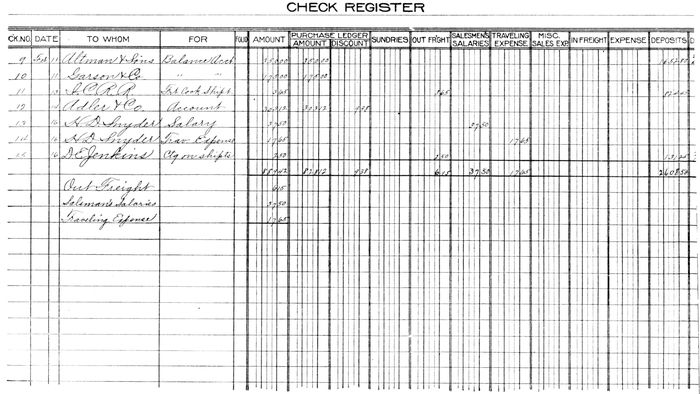 CHECK REGISTER
CK.NO. DATE TO WHOM FOR FOLIO AMOUNT PURCHASE LEDGER AMOUNT DISCOUNT SUNDRIES OUT FR'GHT SALESMEN'S SALARIES TRAVELING EXPENSE MISC. SALES EXP. IN FREIGHT EXPENSE DEPOSITS
9 Feb 11 Altman & Sons Balance Acct 350.00 350.00
10 11 Garson & Co. " " 175.00 175.00
11 I.C.R.R. Frt Cook Shipt 3.65 3.65
12 Adler & Co. Account 303.12 303.12 9.38
13 16 H.D. Snyder Salary 37.50 37.50
14 16 H.D. Snyder Trav. Expense 17.65 17.65
15 16 D.E. Jenkins Ctg on shipts 2.50 2.50
889.42 828.12 9.38 6.15 37.50 17.65 2608.50
Out Freight 6.15
Salsman's Salaries 37.50
Traveling Expense 17.65